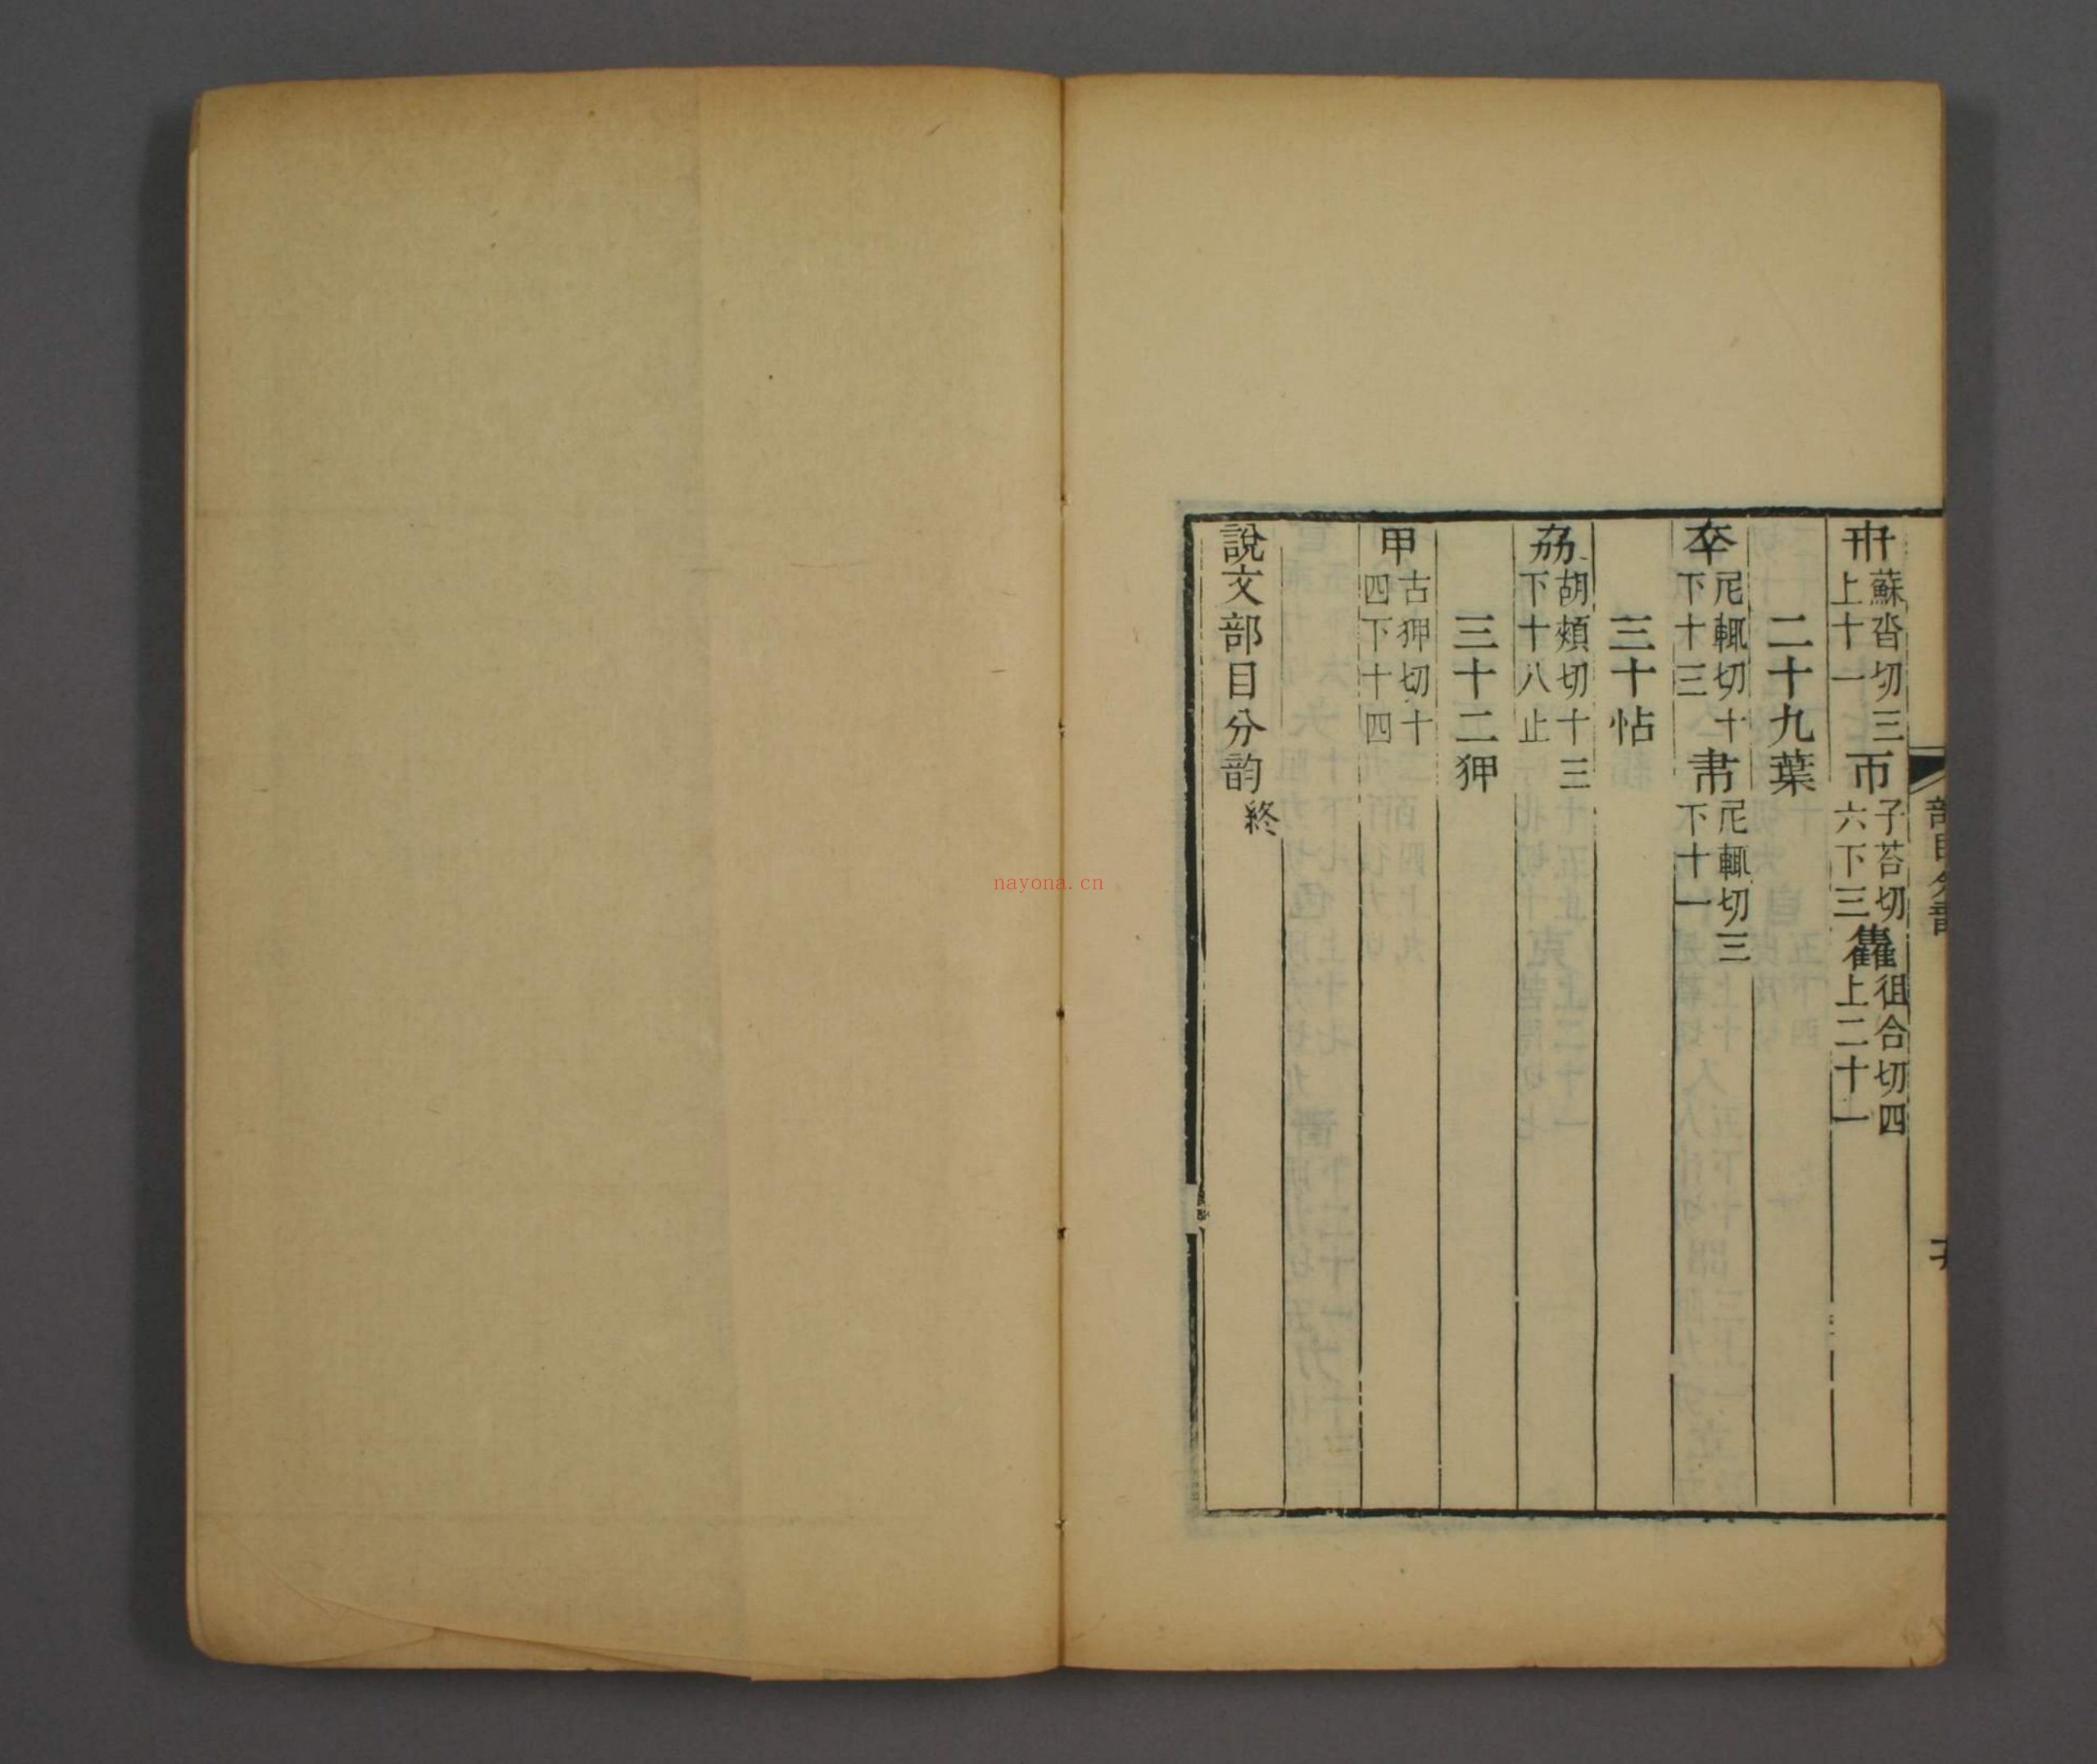 卅蘇沓切三上十一帀子荅切六下三雥徂合切四上二十一
二十九葉
㚔尼輒切十下十三𦘒尼輒切三下十一
三十帖
劦胡頰切十三下十八止
三十二狎
甲古狎切十四下十四
說文部目分韵終
nayona.cn